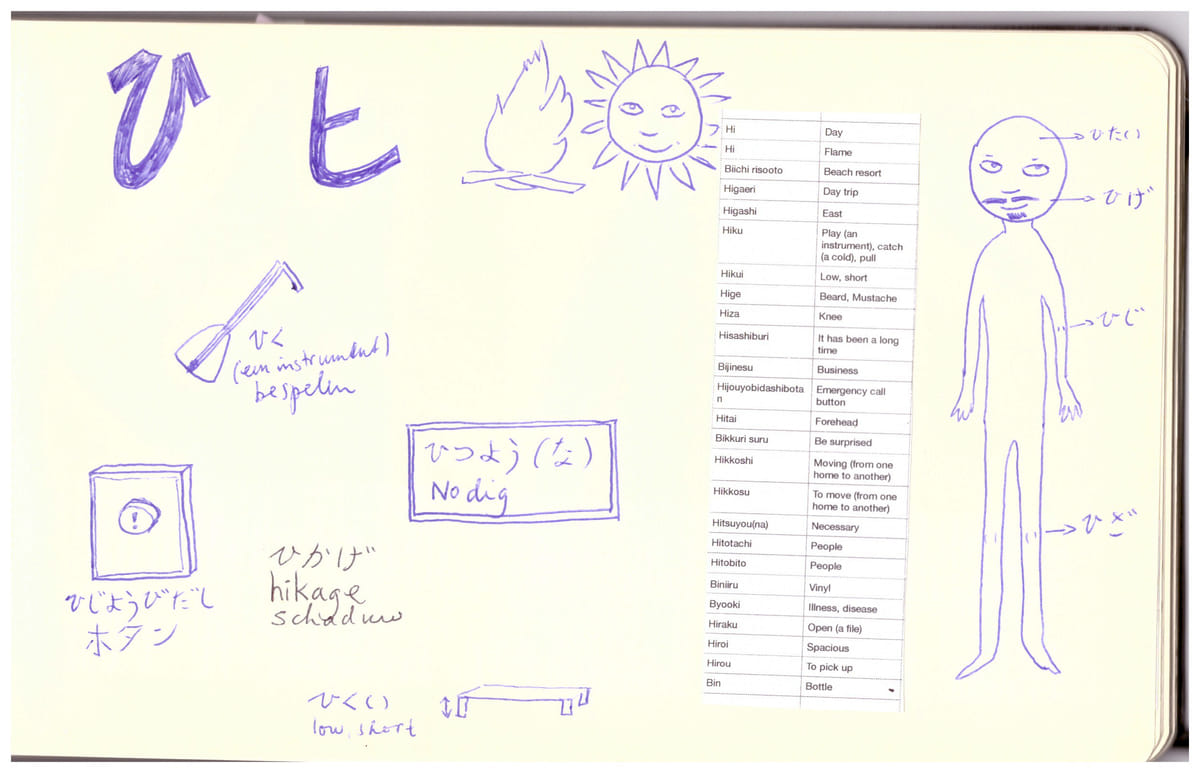 ひ ヒ
ひく
(een instrument)
bespelen
ひつよう(な)
Nodig
!
ひじようびだし
ホタン
ひかげ
hikage
schaduw
ひくい
low, short
Hi Day
Hi Flame
Biichi risooto Beach resort
Higaeri Day trip
Higashi East
Hiku Play (an
instrument), catch
(a cold), pull
Hikui Low, short
Hige Beard, Mustache
Hiza Knee
Hisashiburi It has been a long
time
Bijinesu Business
Hijouyobidashibota Emergency call
n button
Hitai Forehead
Bikkuri suru Be surprised
Hikkoshi Moving (from one
home to another)
Hikkosu To move (from one
home to another)
Hitsuyou(na) Necessary
Hitotachi People
Hitobito People
Biniiru Vinyl
Byooki Illness, disease
Hiraku Open (a file)
Hiroi Spacious
Hirou To pick up
Bin Bottle
ひたい
ひげ
ひじ
ひざ